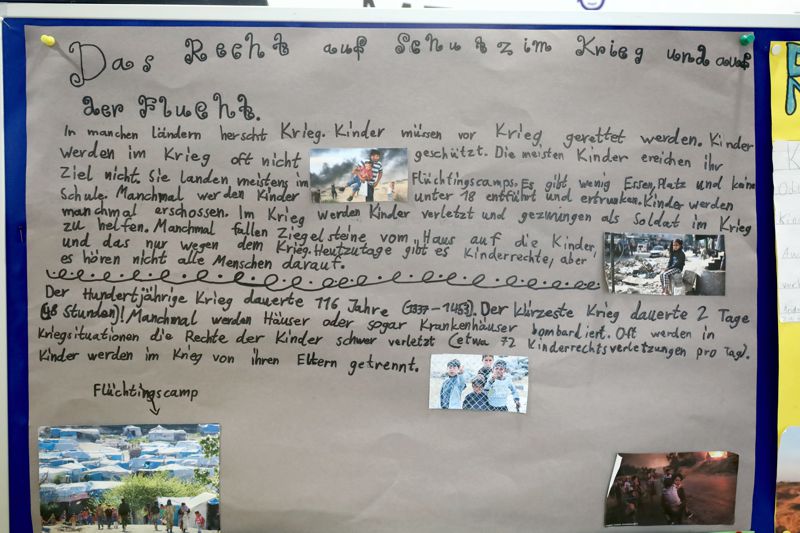 Das Recht auf Schutz im Krieg und auf
der Flucht.
In manchen ländern herscht Krieg. Kinder müssen vor Krieg gerettet werden. Kinder
werden im Krieg oft nicht geschützt. Die meisten Kinder ereichen ihr
Ziel nicht. Sie landen meistens im Flüchtingscamps. Es gibt wenig Essen, Platz und keine
Schule. Manchmal werden Kinder unter 18 entführt und ertrunken. Kinder werden
manchmal erschossen. Im Krieg werden Kinder verletzt und gezwungen als Soldat im Krieg
zu helfen. Manchmal fallen Ziegelsteine vom Haus auf die Kinder,
und das nur wegen dem Krieg. Heutzutage gibt es Kinderrechte, aber
es hören nicht alle Menschen darauf.
Der Hundertjährige Krieg dauerte 116 Jahre (1337-1453). Der kürzeste Krieg dauerte 2 Tage
(48 Stunden)! Manchmal werden Häuser oder sogar Krankenhäuser bombardiert. Oft werden in
Kriegsituationen die Rechte der Kinder schwer verletzt (etwa 72 Kinderrechtsverletzungen pro Tag).
Kinder werden im Krieg von ihren Eltern getrennt.
Flüchtingscamp